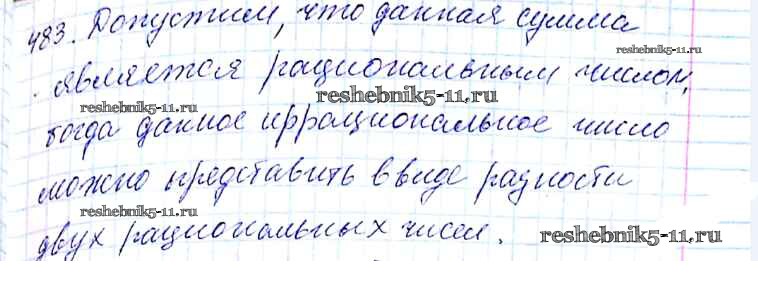 483. Допустим, что данная сумма
reshebnik5-11.ru
является рациональным числом,
reshebnik5-11.ru
reshebnik5-11.ru
тогда данное иррациональное число
можно представить в виде разности
reshebnik5-11.ru
двух рациональных чисел.
reshebnik5-11.ru